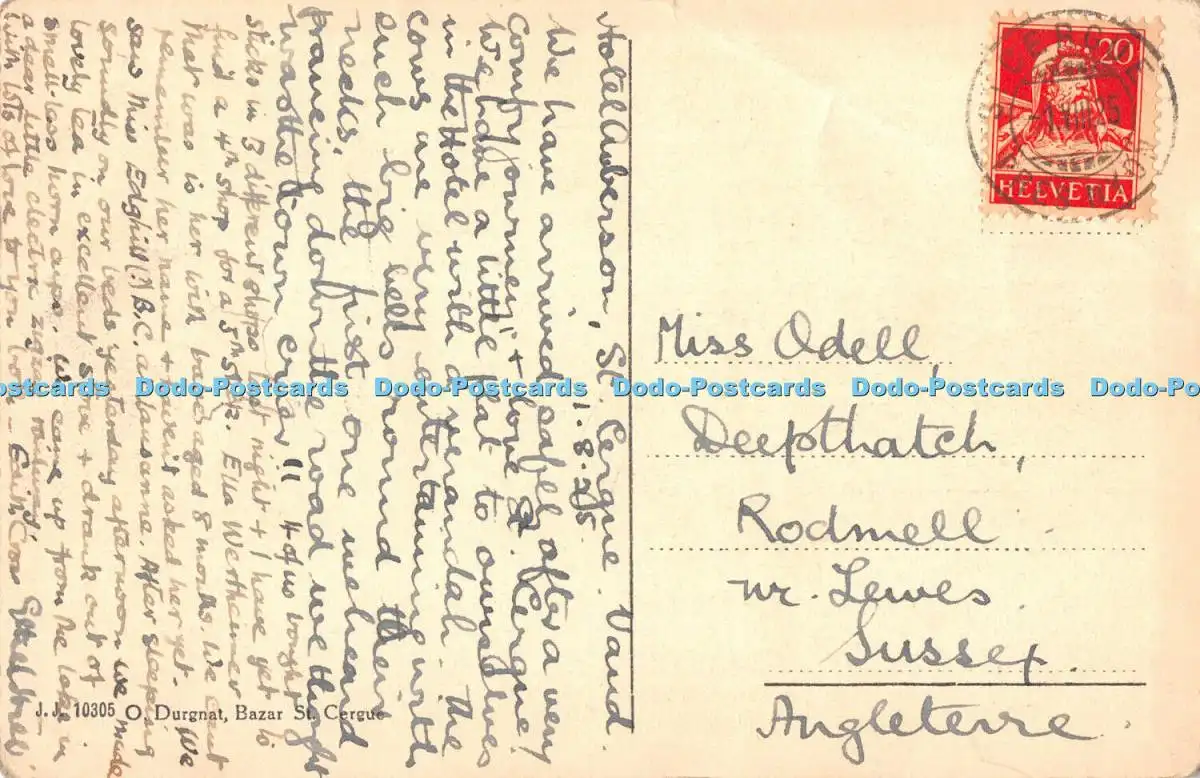 Hotel Auberson, St. Cergue. Vaud.
1. 8. 25
We have arrived safely after a very
comfy journey & love St. Cergue.
We have a little flat to ourselves
in the Hotel with a verandah. The
cows are very entertaining with
such big bells round their
necks, the first one we heard
prancing down the road we thought
was the town crier!! 4 of us bought
sticks in 3 different shops last night & I have yet to
find a 4th shop for a 5th stick. Ella Wertheimer
that was is here with babe aged 8 months. We can't
remember her name & haven't asked her yet. We
saw Miss Edghill A.B.C. at Lausanne. After sleeping
soundly on our beds yesterday afternoon we made
lovely tea in excellent stove & drank out of
smell-less horn cups. We came up from the lake in
a dear little electric zigzag railway
with lots of love to you both –
HELVETIA
20
Miss Odell,
Deepthatch,
Rodmell
nr. Lewes.
Sussex.
Angleterre.
J.J. 10305 O. Durgnat, Bazar St. Cergue
Dodo-Postcards Dodo-Postcards Dodo-Postcards Dodo-Postcards Dodo-Postcards